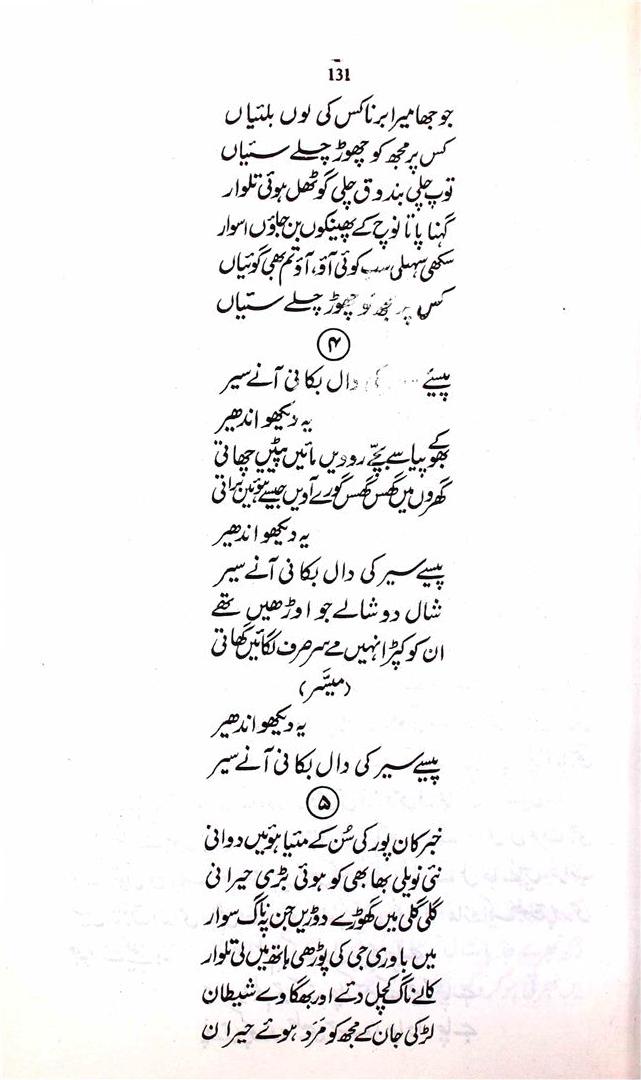 131
جو جھامیرا برناکس کی لوں بلئیاں
کس پر مجھ کو چھوڑ چلے سئیاں
توپ چلی بندوق چلی گوٹھل ہوئی تلوار
گہنا پاتا نوچ کے پھینکوں بن جاؤں اسوار
سکھی سہیلی سب کوئی آؤ، آؤ تم بھی گوئیاں
کس پر مجھ کو چھوڑ چلے سئیاں
۴
پیسے کی دال بکانی آنے سیر
یہ دیکھو اندھیر
بھوکے پیاسے بچے روویں مائیں پیٹیں چھاتی
گھروں میں گھس گھس گورے آویں جیسے ہوئین براتی
یہ دیکھو اندھیر
پیسے سیر کی دال بکانی آنے سیر
شال دو شالے جو اوڑھیں تھے
ان کو کپڑا نہیں مے سر صرف لگائیں گھاتی
(میسّر)
یہ دیکھو اندھیر
پیسے سیر کی دال بکانی آنے سیر
۵
خبر کان پور کی سُن کے متیا ہوئیں دوانی
نئی نویلی بھابھی کو ہوئی بڑی حیرانی
گلی گلی میں گھوڑے دوڑیں جن پہ پاگ سوار
میں باوری جی کی پوڑھی ہاتھ میں لی تلوار
کالے ناگ کچل دئے اور بھگاوے شیطان
لڑکی جان کے مجھ کو مَرد ہوئے حیران